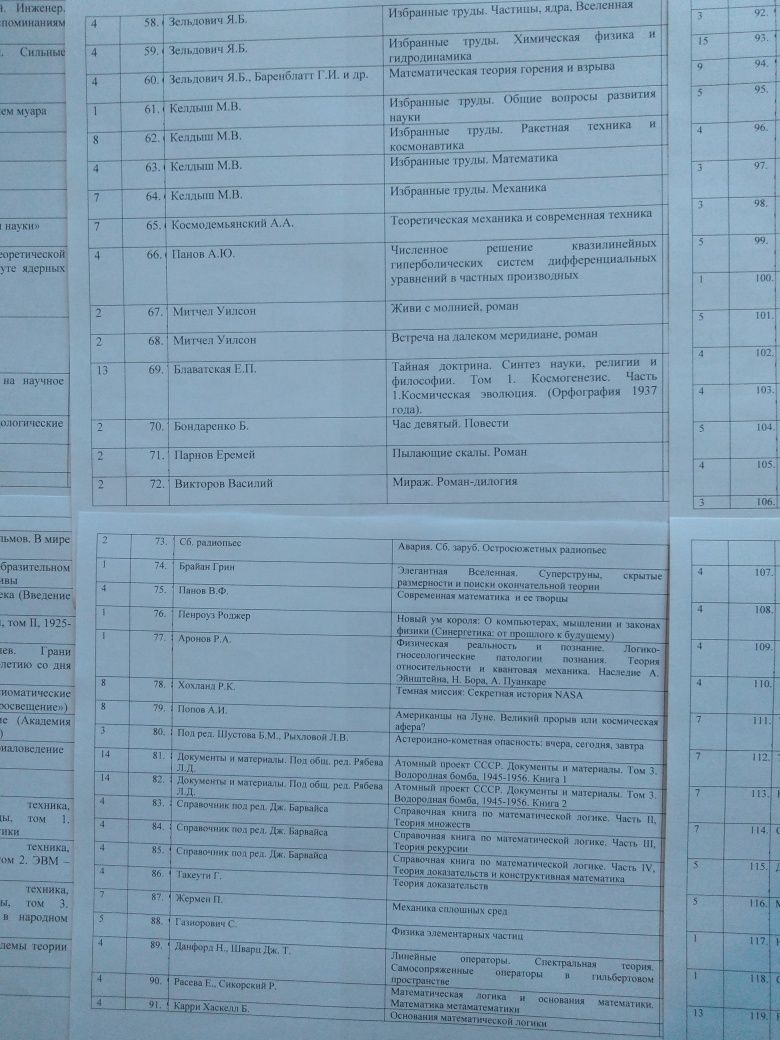 й. Инженер.
споминаниям
. Сильные
ем муара
и науки»
еоретической
уте ядерных
на научное
ологические
4 58. Зельдович Я.Б. Избранные труды. Частицы, ядра, Вселенная
4 59. Зельдович Я.Б. Избранные труды. Химическая физика и
гидродинамика
4 60. Зельдович Я.Б., Баренблатт Г.И. и др. Математическая теория горения и взрыва
1 61. Келдыш М.В. Избранные труды. Общие вопросы развития
науки
8 62. Келдыш М.В. Избранные труды. Ракетная техника и
космонавтика
4 63. Келдыш М.В. Избранные труды. Математика
7 64. Келдыш М.В. Избранные труды. Механика
7 65. Космодемьянский А.А. Теоретическая механика и современная техника
4 66. Панов А.Ю. Численное решение квазилинейных
гиперболических систем дифференциальных
уравнений в частных производных
2 67. Митчел Уилсон Живи с молнией, роман
2 68. Митчел Уилсон Встреча на далеком меридиане, роман
13 69. Блаватская Е.П. Тайная доктрина. Синтез науки, религии и
философии. Том 1. Космогенезис. Часть
1.Космическая эволюция. (Орфография 1937
года).
2 70. Бондаренко Б. Час девятый. Повести
2 71. Парнов Еремей Пылающие скалы. Роман
2 72. Викторов Василий Мираж. Роман-дилогия
3 92.
15 93.
9 94.
5 95.
4 96.
3 97.
3 98.
5 99.
1 100.
5 101.
4 102.
4 103.
5 104.
4 105.
3 106.
льмов. В мире
бразительном
ивы
ека (Введение
, том II, 1925-
цев. Грани
летию со дня
сиоматические
росвещение»)
ие (Академия
)
риаловедение
техника,
ды, том 1.
тики
техника,
ом 2. ЭВМ –
техника,
ы, том 3.
в народном
лемы теории
2 73. Сб. радиопьес Авария. Сб. заруб. Остросюжетных радиопьес
1 74. Брайан Грин Элегантная Вселенная. Суперструны, скрытые
размерности и поиски окончательной теории
4 75. Панов В.Ф. Современная математика и ее творцы
1 76. Пенроуз Роджер Новый ум короля: О компьютерах, мышлении и законах
физики (Синергетика: от прошлого к будущему)
1 77. Аронов Р.А. Физическая реальность и познание. Логико-
гносеологические патологии познания. Теория
относительности и квантовая механика. Наследие А.
Эйнштейна, Н. Бора, А. Пуанкаре
8 78. Хохланд Р.К. Темная миссия: Секретная история NASA
8 79. Попов А.И. Американцы на Луне. Великий прорыв или космическая
афера?
3 80. Под ред. Шустова Б.М., Рыхловой Л.В. Астероидно-кометная опасность: вчера, сегодня, завтра
14 81. Документы и материалы. Под общ. ред. Рябева
Л.Д. Атомный проект СССР. Документы и материалы. Том 3.
Водородная бомба, 1945-1956. Книга 1
14 82. Документы и материалы. Под общ. ред. Рябева
Л.Д. Атомный проект СССР. Документы и материалы. Том 3.
Водородная бомба, 1945-1956. Книга 2
4 83. Справочник под ред. Дж. Барвайса Справочная книга по математической логике. Часть II,
Теория множеств
4 84. Справочник под ред. Дж. Барвайса Справочная книга по математической логике. Часть III,
Теория рекурсии
4 85. Справочник под ред. Дж. Барвайса Справочная книга по математической логике. Часть IV,
Теория доказательств и конструктивная математика
4 86. Такеути Г. Теория доказательств
7 87. Жермен П. Механика сплошных сред
5 88. Газиорович С. Физика элементарных частиц
4 89. Данфорд Н., Шварц Дж. Т. Линейные операторы. Спектральная теория.
Самосопряженные операторы в гильбертовом
пространстве
4 90. Расева Е., Сикорский Р. Математическая логика и основания математики.
Математика метаматематики
4 91. Карри Хаскелл Б. Основания математической логики
4 107.
4 108.
4 109.
4 110.
7 111.
7 112.
7 113.
7 114.
5 115.
5 116.
1 117.
1 118.
13 119.